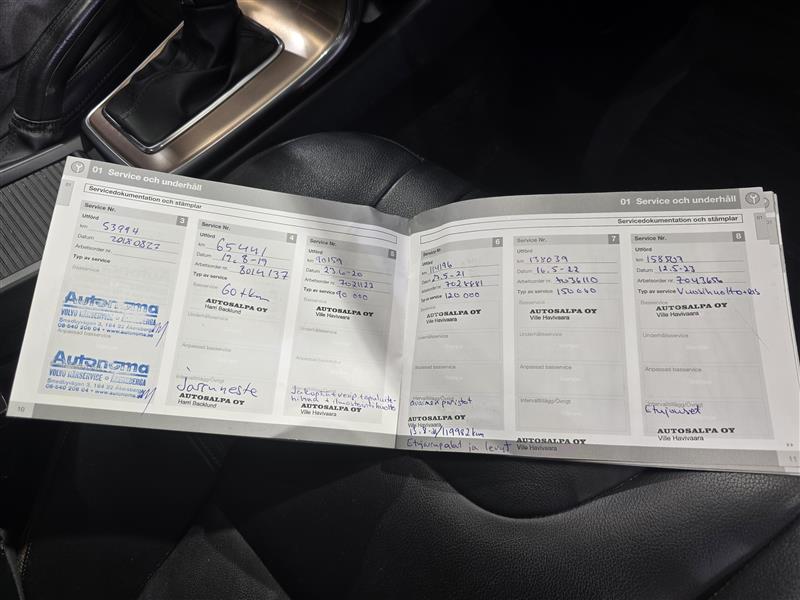 01 Service och underhåll
Servicedokumentation och stämplar
Service Nr. 3
Utförd
km 53994
Datum 20180827
Arbetsorder nr.
Typ av service
Basservice
Autonoma
VOLVO
08-540 206 04 • www.autonoma
Anpassad basservice
Autonoma
VOLVO
Smedbyvägen 3, 184 32 Åkersberga
08-540 206 04 • www.autonoma
10
Service Nr. 4
Utförd
km 65441
Datum 12.8-19
Arbetsorder nr. 8014137
Typ av service
60 tkm
AUTOSALPA OY
Harri Backlund
Underhållsservice
Anpassad basservice
Jarruneste
AUTOSALPA OY
Harri Backlund
Service Nr. 5
Utförd
km 90159
Datum 23.6-20
Arbetsorder nr. 7021122
Typ av service 90 000
Basservice
AUTOSALPA OY
Ville Havivaara
Underhållsservice
Anpassad basservice
Intervalltillägg/Övrigt
AUTOSALPA OY
Ville Havivaara
01 Service och underhåll
Servicedokumentation och stämplar
01
Service Nr. 6
Utförd
km 114196
Datum
Arbetsorder nr.
Typ av service 120 000
Basservice
AUTOSALPA OY
Ville Havivaara
Underhållsservice
Anpassad basservice
AUTOSALPA OY
Ville Havivaara
119982 km
Etujarrupalat ja levyt
Service Nr. 7
Utförd
km 138039
Datum 16.5-22
Arbetsorder nr. 7036110
Typ av service 150 000
Basservice
AUTOSALPA OY
Ville Havivaara
Underhållsservice
Anpassad basservice
Intervalltillägg/Övrigt
AUTOSALPA OY
Ville Havivaara
Service Nr. 8
Utförd
km
Datum 12.5-23
Arbetsorder nr. 7043656
Typ av service
Basservice
AUTOSALPA OY
Ville Havivaara
Underhållsservice
Anpassad basservice
Intervalltillägg/Övrigt
Etujouset
AUTOSALPA OY
Ville Havivaara
11